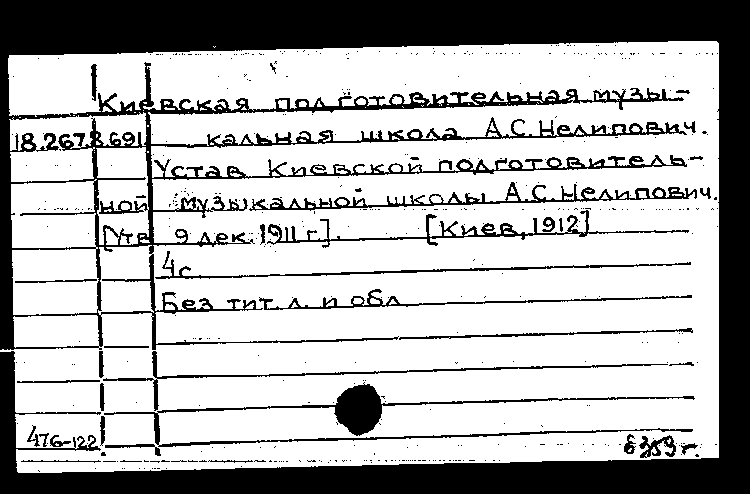 Киевская подготовительная музы-
18.267.8.691 кальная школа А.С. Нелипович.
Устав Киевской подготовитель-
ной музыкальной школы А.С. Нелипович.
[Утв. 9 дек. 1911 г.]. [Киев, 1912]
4с.
Без тит. л. и обл
476-122